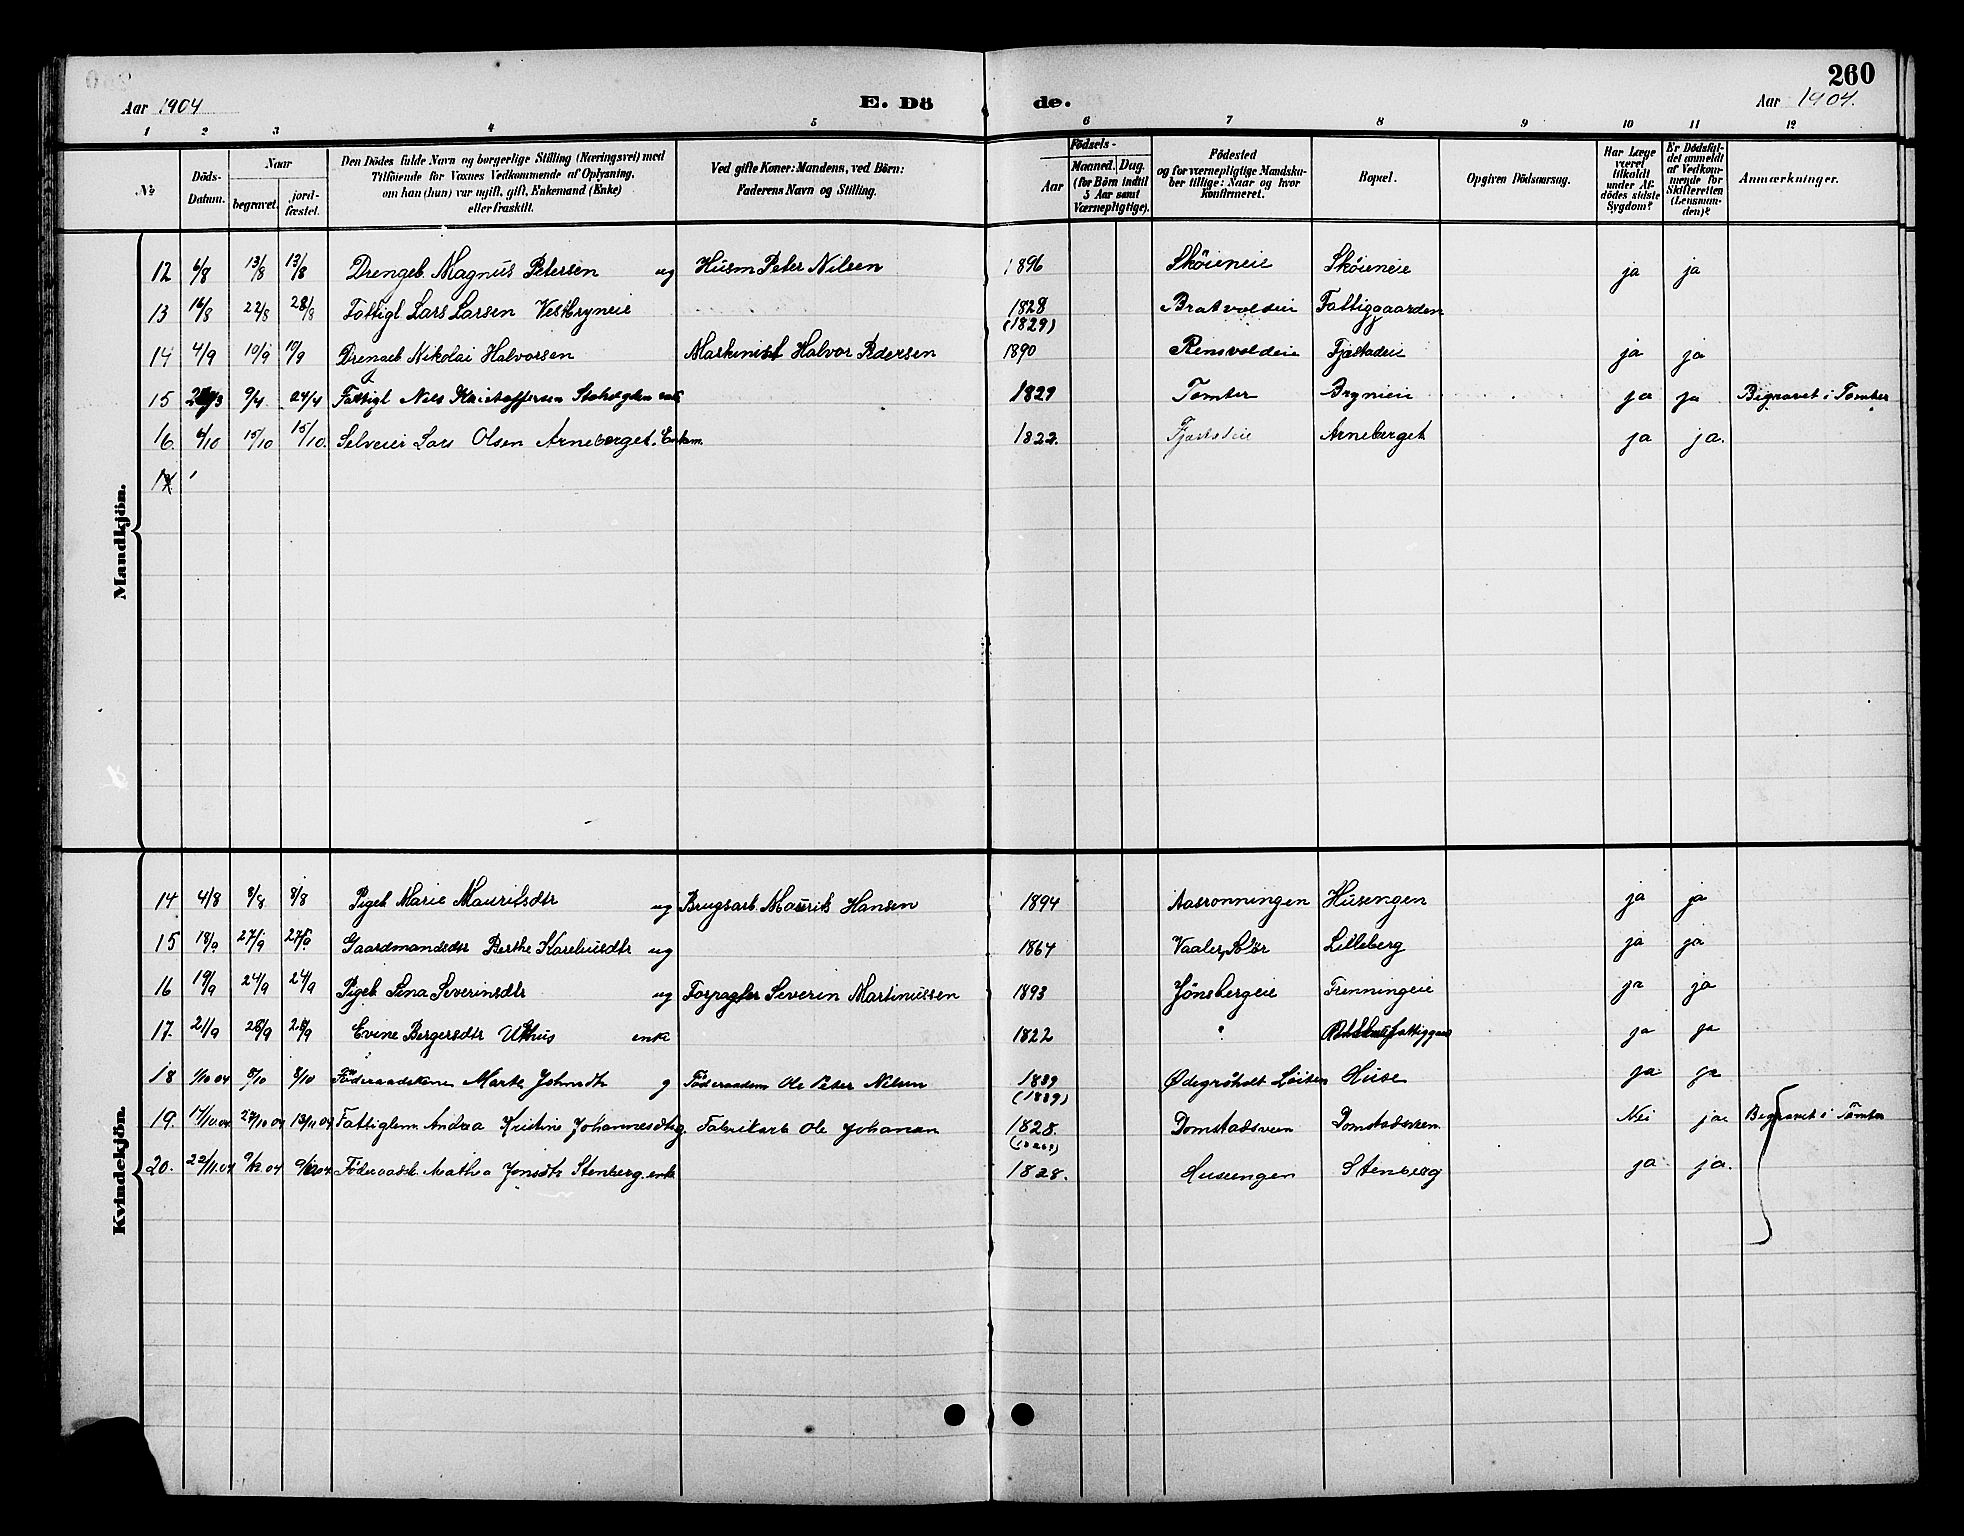 260
Aar 1904 E. Dö de. Aar 1904.
1 2 3 4 5 6 7 8 9 10 11 12
№
Döds-
Datum.
Naar
begravet.
jord-
fæstet.
Den Dödes fulde Navn og borgerlige Stilling (Næringsvei) med
Tilföiende for Voxnes Vedkommende af Oplysning,
om han (hun) var ugift, gift, Enkemand (Enke)
eller fraskilt.
Ved gifte Koner: Mandens, ved Börn:
Faderens Navn og Stilling.
Födsels-
Aar
Maaned. Dag.
(for Börn indtil
5 Aar samt
Værnepligtige).
Födested
og for værnepligtige Mandska-
ber tillige: Naar og hvor
konfirmeret.
Bopæl.
Opgiven Dödsaarsag.
Har Læge
været
tilkaldt
under Af-
dödes sidste
Sygdom?
Er Dödsfal-
det anmeldt
af Vedkom-
mende for
Skifteretten
(Lensman-
den)?
Anmærkninger.
Mandkjön.
12 6/8 13/8 13/8 Drengeb. Magnus Petersen ug Husm Peter Nilsen 1896 Sköieneie Sköieneie ja ja
13 16/8 22/8 28/8 Fattigl Lars Larsen Vestbryneie 1828 Bratvoldeie Fattiggaarden
(1829)
14 4/9 10/9 10/9 Drengeb Nikolai Halvorsen Maskinist Halvor Pedersen 1890 Rensvoldeie Fjæstadeie ja ja
15 9/4 24/4 Fattigl Nils Kristoffersen 1829 Tomter Brynieie ja ja Begravet i Tomter
16. 6/10 15/10 15/10. Selveier Lars Olsen Arneberget. Enkem. 1822. Fjæstadeie Arneberget ja ja.
Kvindekjön.
14 4/8 8/8 8/8 Pigeb Marie Mauritsdtr ug Brugsarb. Maurits Hansen 1894 Aasronningen Husengen ja ja
15 18/9 27/9 27/9 Gaardmandsdtr Berthe Karehusdtr ug 1864 Vaaler, Solör Lilleberg ja ja
16 19/9 24/9 24/9 Pigeb Lina Severinsdtr ug Forpagter Severin Martinussen 1893 Jönsbergeie Frenningeie ja ja
17. 21/9 28/9 28/9 Evine Bergersdtr Uthus enke 1822 " ja ja
18 1/10 04 8/10 8/10 Föderaadskone Marte Johnsdtr g Föderaadsm Ole Peter Nilsen 1839 Løiten Huse ja ja
19. 17/10.04 27/10 04 13/11 04 Fattiglem. Andrea Kristine Johannesdtr g. Fabrikarb Ole Johansen 1828. Domstadsveen Domstadsveen Nei ja Begravet i Tomter
20. 22/11.04 9/12 04 Föderaadsk Mathea Jonsdtr Stenberg. enke 1828. Husengen Stenberg ja ja.